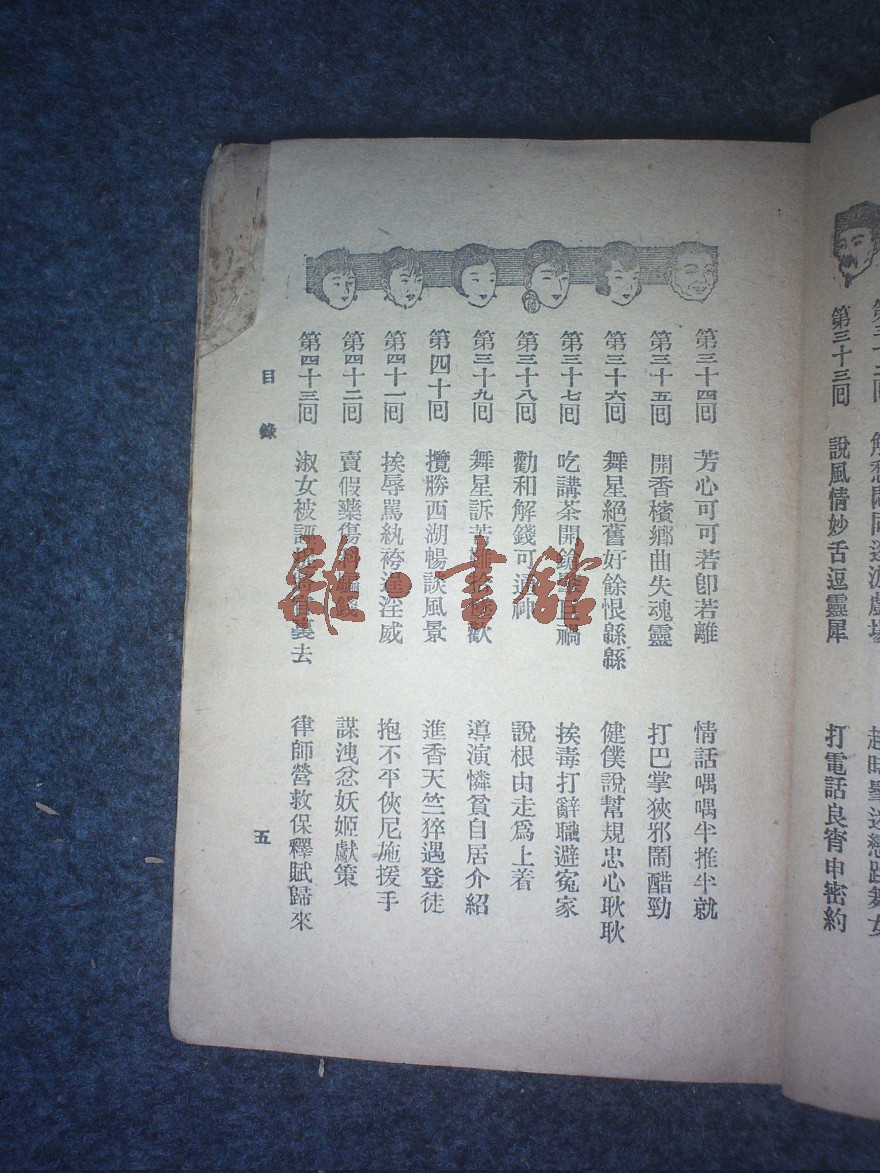 第三十三回 說風情妙舌逗靈犀 打電話良宵申密約
第三十四回 芳心可可若卽若離 情話喁喁半推半就
第三十五回 開香檳鄉曲失魂靈 打巴掌狹邪鬧醋勁
第三十六回 舞星絕舊好餘恨緜緜 健僕說幫規忠心耿耿
第三十七回 吃講茶開鏡 禍 挨毒打辭職避冤家
第三十八回 勸和解錢可通神 說根由走爲上着
第三十九回 舞星訴苦 歡 導演憐貧自居介紹
第四十回 攬勝西湖暢談風景 進香天竺猝遇登徒
第四十一回 挨辱罵紈袴逞淫威 抱不平俠尼施援手
第四十二回 賣假藥傷 謀洩忿妖姬獻策
第四十三回 淑女被誣 裏去 律師營救保釋賦歸來
目錄
五
雜·書館